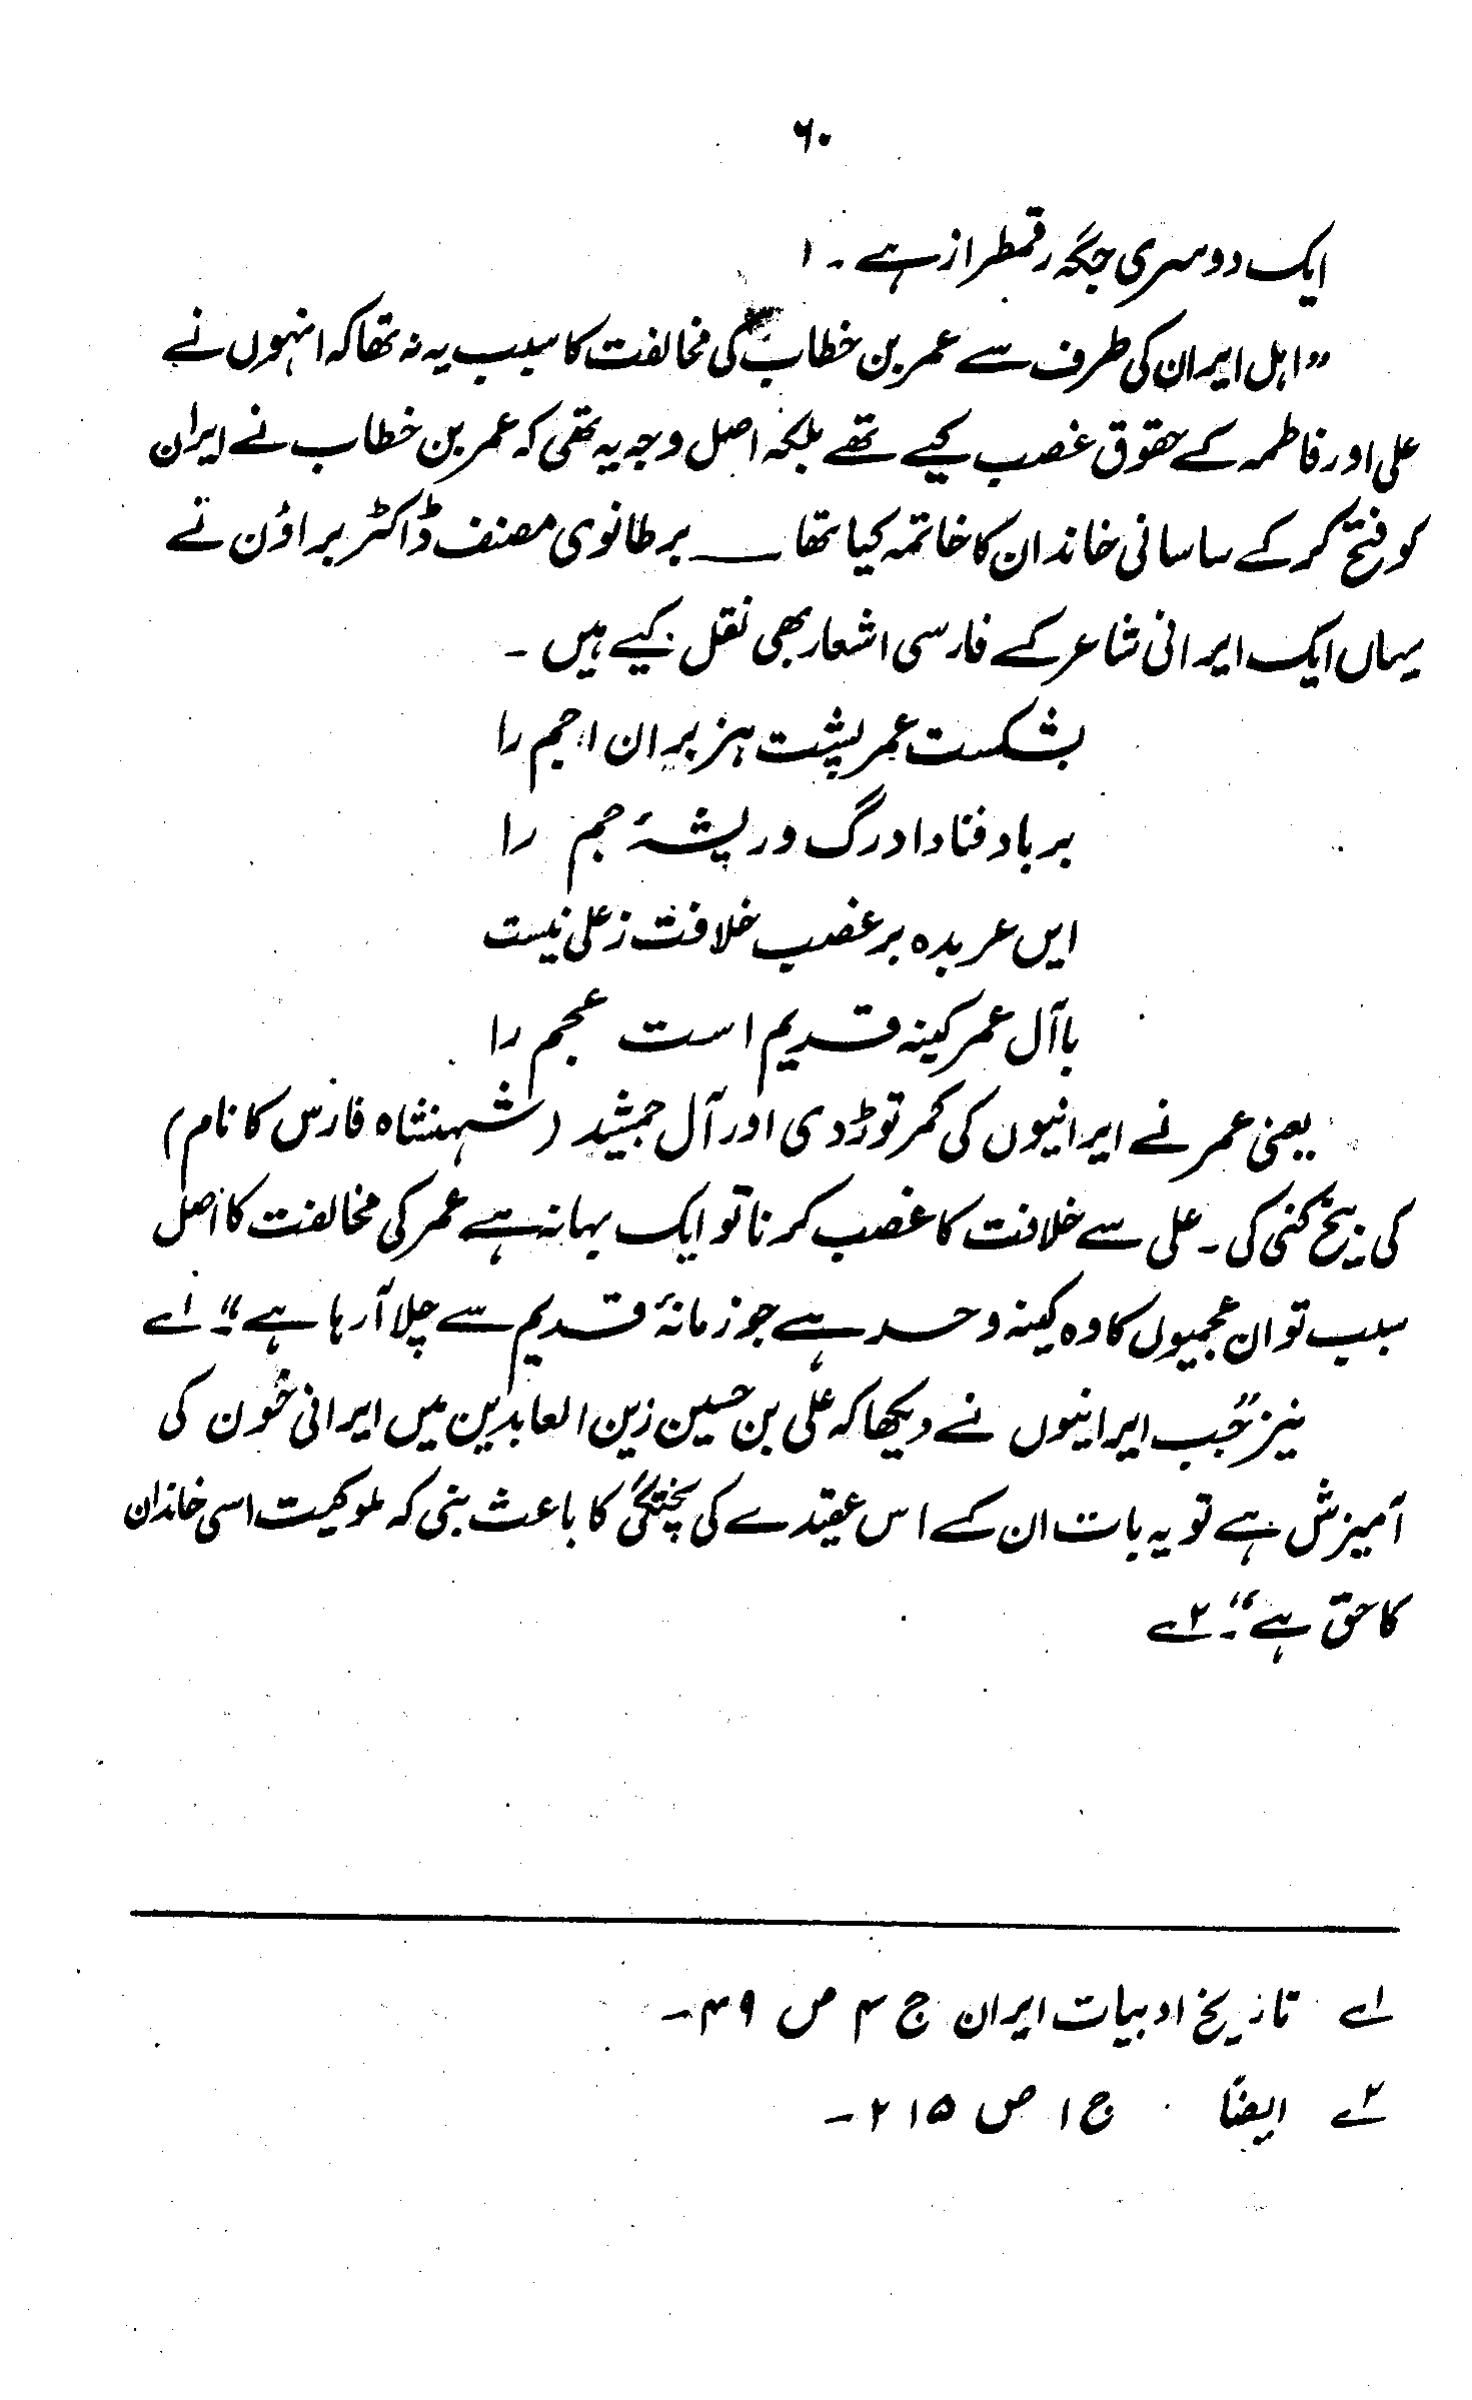 ۶۰
ایک دوسری جگہ رقمطراز ہے۔ ۱
”اہل ایران کی طرف سے عمر بن خطاب کی مخالفت کا سبب یہ نہ تھا کہ انہوں نے
علی اور فاطمہ کے حقوق غصب کیے تھے بلکہ اصل وجہ یہ تھی کہ عمر بن خطاب نے ایران
کو فتح کرکے ساسانی خاندان کا خاتمہ کیا تھا ـــــ برطانوی مصنف ڈاکٹر براؤن نے
یہاں ایک ایرانی شاعر کے فارسی اشعار بھی نقل کیے ہیں۔
بشکست عمر پشت ہزبران اجم را
برباد فنا داد رگ و ریشۂ جم را
ایں عربدہ بر غصب خلافت ز علی نیست
با آل عمر کینہ قدیم است عجم را
یعنی عمر نے ایرانیوں کی کمر توڑ دی اور آل جمشید (شہنشاہ فارس کا نام)
کی بیخ کنی کی۔ علی سے خلافت کا غصب کرنا تو ایک بہانہ ہے عمر کی مخالفت کا اصل
سبب تو ان عجمیوں کا وہ کینہ و حسد ہے جو زمانۂ قدیم سے چلا آ رہا ہے“۔ ۱ے
نیز ”جب ایرانیوں نے دیکھا کہ علی بن حسین زین العابدین میں ایرانی خون کی
آمیزش ہے تو یہ بات ان کے اس عقیدے کی پختگی کا باعث بنی کہ ملوکیت اسی خاندان
کا حق ہے“۔ ۲ے
۱ے تاریخ ادبیات ایران ج ۴ ص ۴۹۔
۲ے ایضاً ج ۱ ص ۲۱۵۔